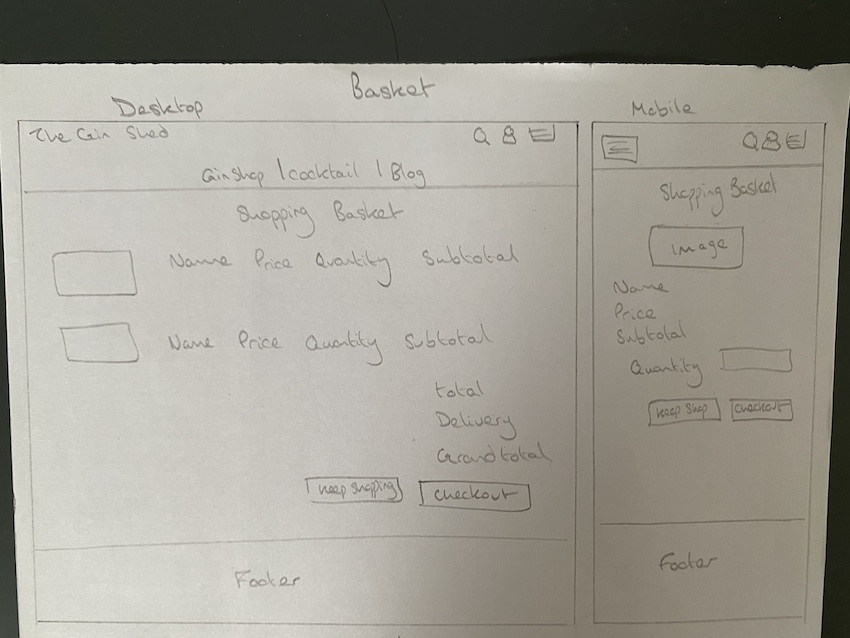 Basket
Desktop
The Gin Shed
Gin shop | cocktail | Blog
Shopping Basket
Name Price Quantity Subtotal
Name Price Quantity Subtotal
total
Delivery
Grand total
keep shopping
checkout
Footer
Mobile
Shopping Basket
Image
Name
Price
Subtotal
Quantity
keep shop
checkout
Footer